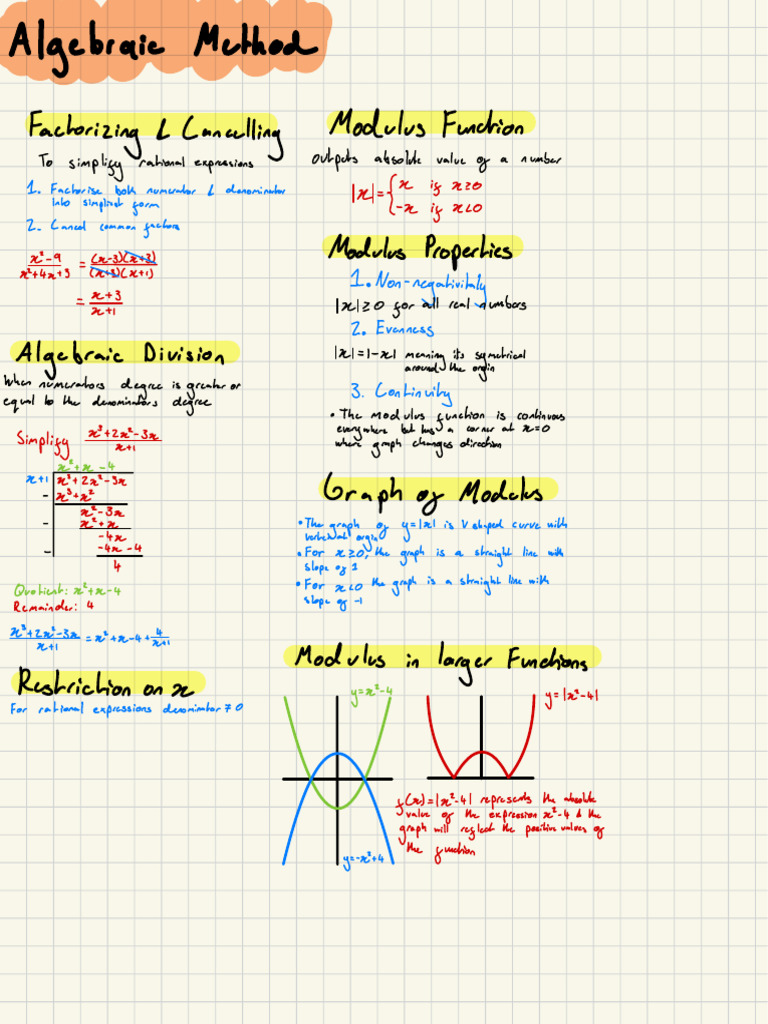 Algebraic Method
Factorizing & Cancelling
To simplify rational expressions
1. Factorise both numerator & denominator
into simplest form
2. Cancel common factors
x²-9 / x²+4x+3 = (x-3)(x+3) / (x+3)(x+1)
= x+3 / x+1
Algebraic Division
When numerators degree is greater or
equal to the denominators degree
Simplify x³+2x²-3x / x+1
x²+x-4
x+1 x³+2x²-3x
- x³+x²
x²-3x
- x²+x
-4x
- -4x-4
4
Quotient: x²+x-4
Remainder: 4
x³+2x²-3x / x+1 = x²+x-4+ 4 / x+1
Restriction on x
For rational expressions denominator ≠ 0
Modulus Function
outputs absolute value of a number
|x|= { x if x≥0
-x if x<0
Modulus Properties
1. Non-negativitaly
|x|≥0 for all real numbers
2. Evenness
|x|=|-x| meaning its symetrical
around the orgin
3. Continuity
• The modulus function is continuous
everywhere but has a corner at x=0
where graph changes direction
Graph of Modulus
• The graph of y=|x| is V shaped curve with
orgin
• For x≥0, the graph is a straight line with
slope of 1
• For x<0 the graph is a straight line with
slope of -1
Modulus in larger Functions
y=x²-4
y=-x²+4
y=|x²-4|
f(x)=|x²-4| represents the absolute
value of the expression x²-4 & the
graph will reflect the positive values of
the function